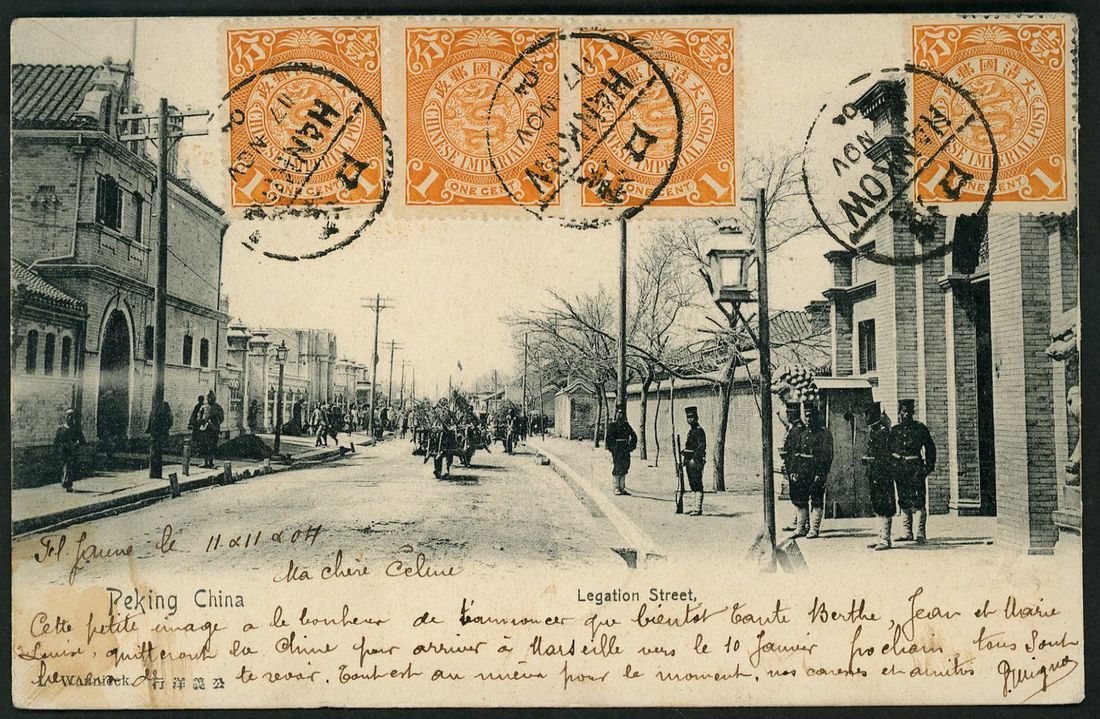 分 壹
大清國郵政
CHINESE IMPERIAL POST
1 ONE CENT 1
分 壹
大清國郵政
CHINESE IMPERIAL POST
1 ONE CENT 1
分 壹
大清國郵政
CHINESE IMPERIAL POST
1 ONE CENT 1
分 壹
大清國郵政
CHINESE IMPERIAL POST
1 ONE CENT 1
HANKOW 口 17 NOV 04
HANKOW 口 17 NOV 04
HANKOW 口 NOV 04
Fl. Jaune le 11 x 11 x 04
Ma chère Céline
Peking China
Legation Street,
Cette petite image a le bonheur de t'annoncer que bientôt Tante Berthe, Jean et Marie
Louise, quitteront la Chine pour arriver à Marseille vers le 10 Janvier prochain, tous sont
de te revoir. Tout est au mieux pour le moment, nos caresses et amitiés
L. Wannieck. 行洋義公